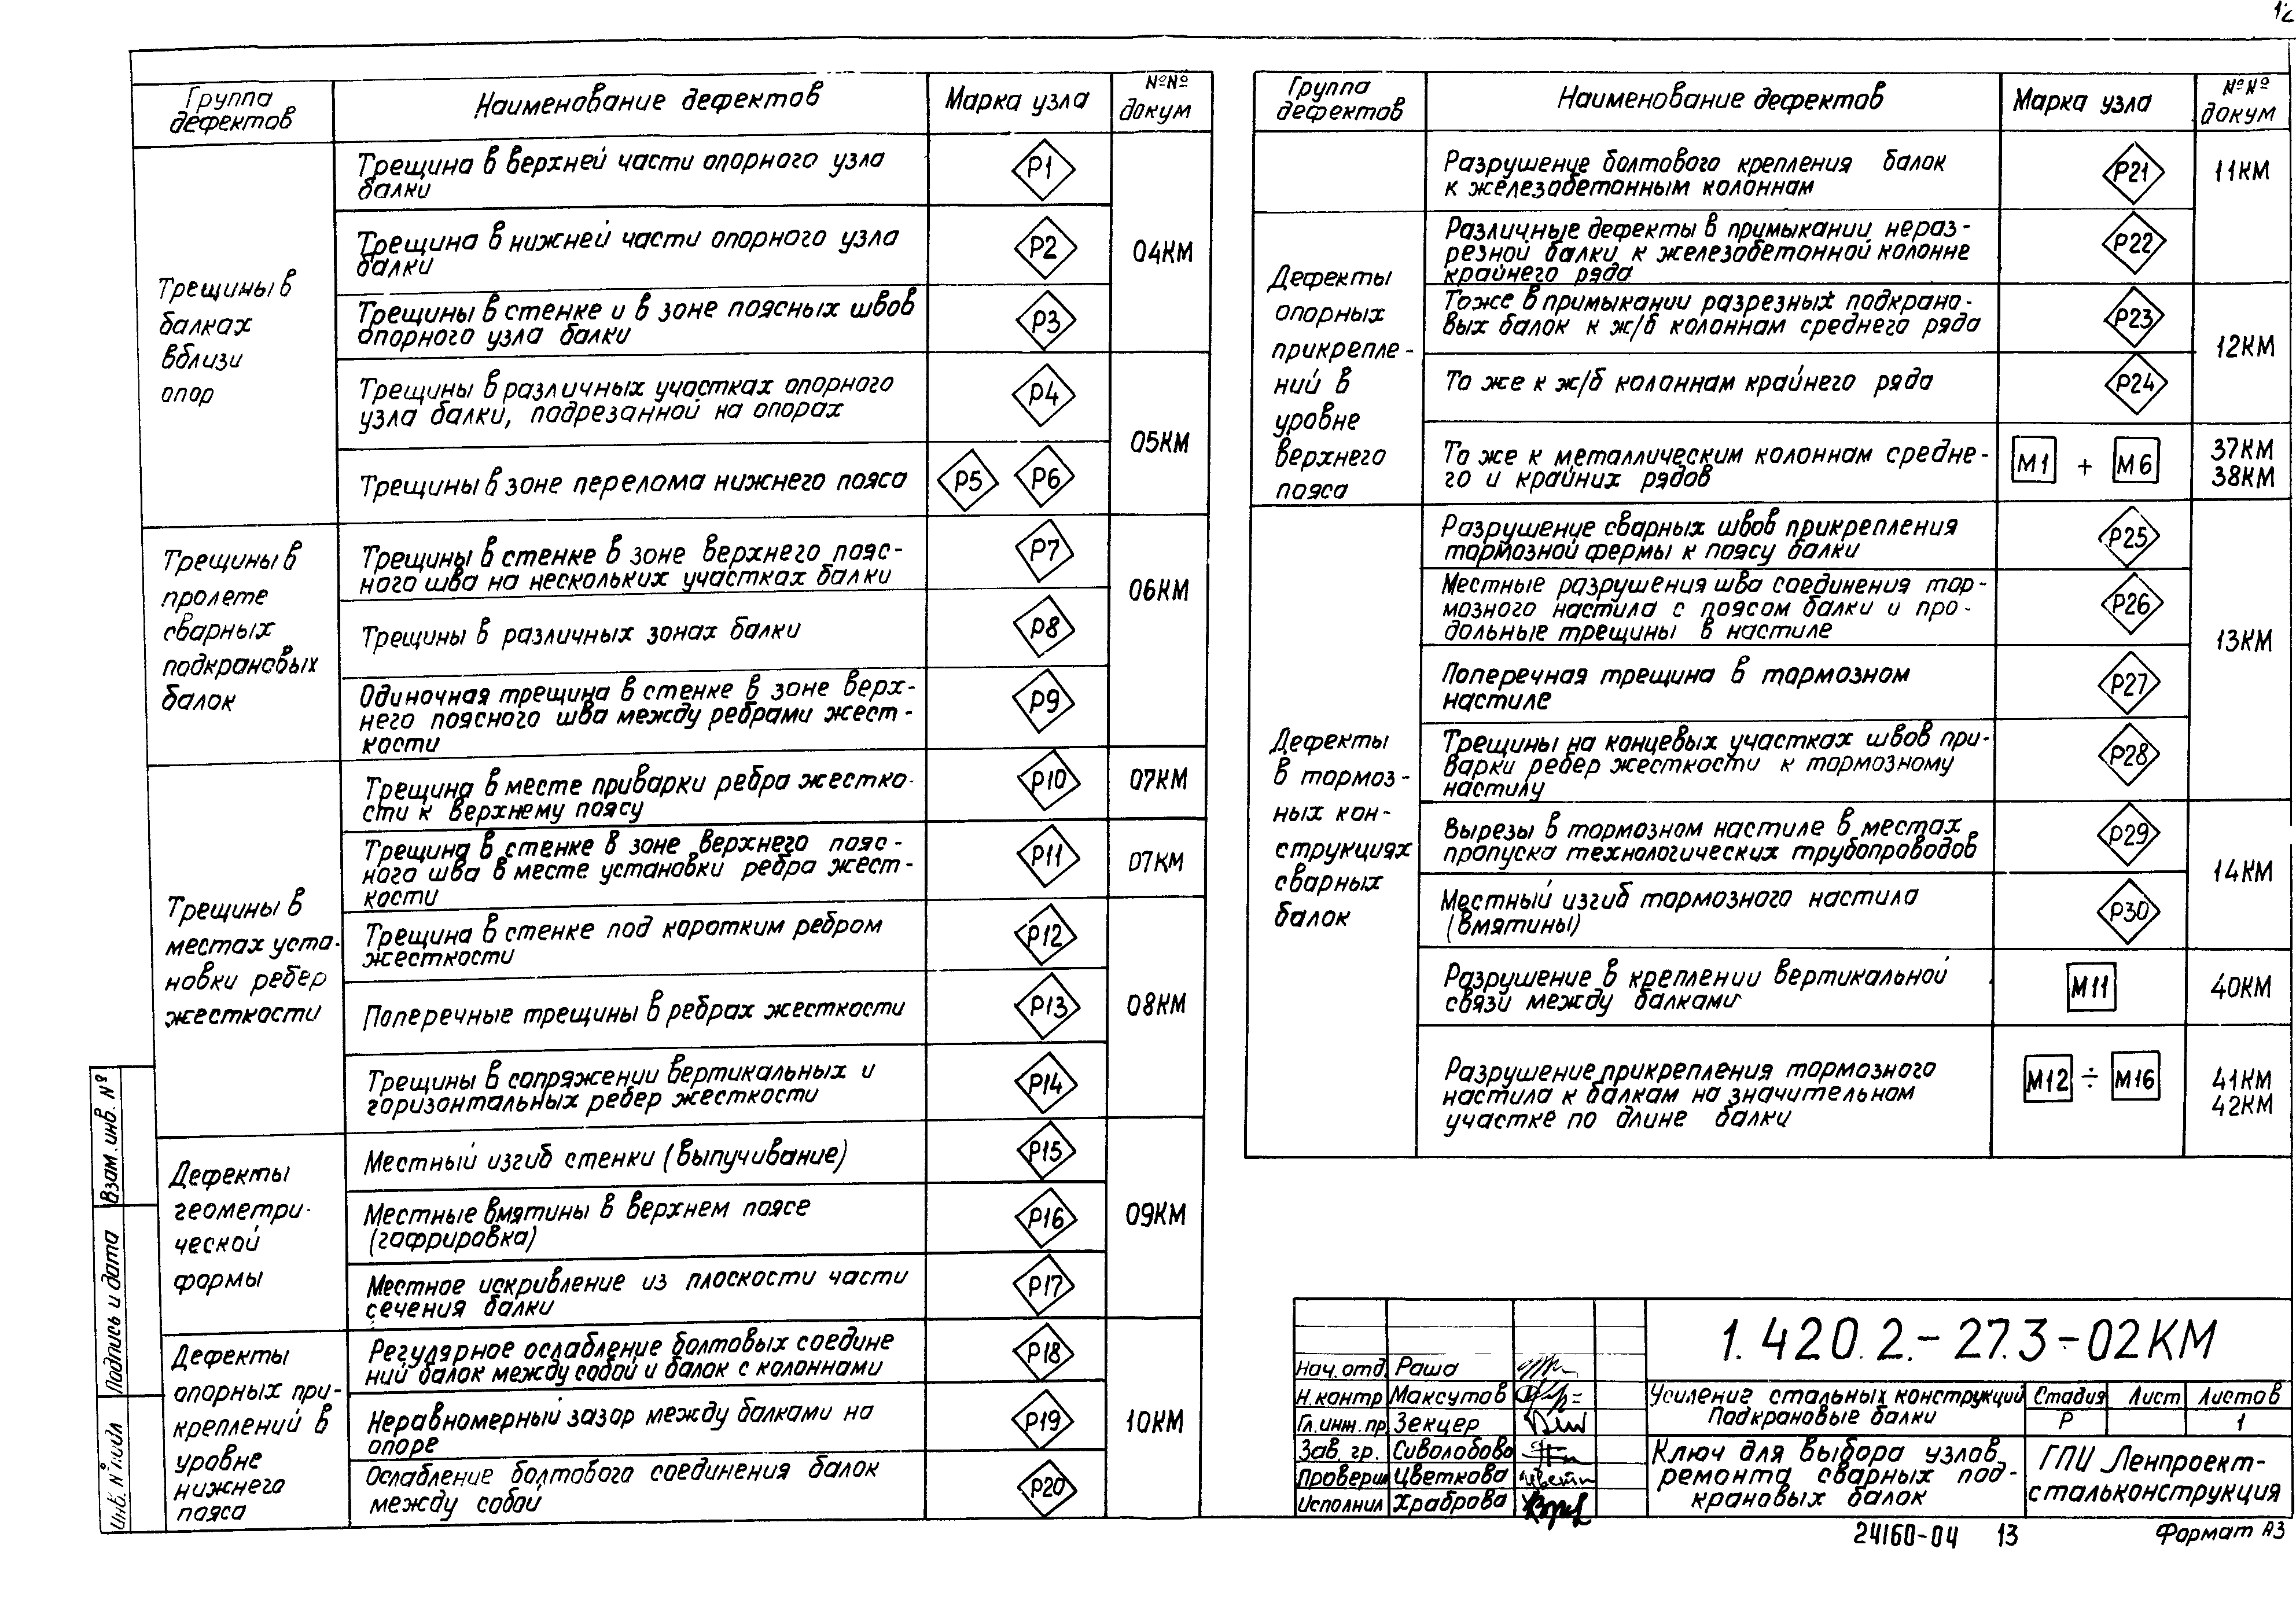 12
Группа
дефектов
Наименование дефектов
Марка узла
№№
докум
Трещины в
балках
вблизи
опор
Трещина в верхней части опорного узла
балки
Р1
Трещина в нижней части опорного узла
балки
Р2
04КМ
Трещины в стенке и в зоне поясных швов
опорного узла балки
Р3
Трещины в различных участках опорного
узла балки, подрезанной на опорах
Р4
05КМ
Трещины в зоне перелома нижнего пояса
Р5 Р6
Трещины в
пролете
сварных
подкрановых
балок
Трещины в стенке в зоне верхнего пояс-
ного шва на нескольких участках балки
Р7
06КМ
Трещины в различных зонах балки
Р8
Одиночная трещина в стенке в зоне верх-
него поясного шва между ребрами жест-
кости
Р9
Трещины в
местах уста-
новки ребер
жесткости
Трещина в месте приварки ребра жестко-
сти к верхнему поясу
Р10
07КМ
Трещина в стенке в зоне верхнего пояс-
ного шва в месте установки ребра жест-
кости
Р11
07КМ
Трещина в стенке под коротким ребром
жесткости
Р12
Поперечные трещины в ребрах жесткости
Р13
08КМ
Трещины в сопряжении вертикальных и
горизонтальных ребер жесткости
Р14
Дефекты
геометри-
ческой
формы
Местный изгиб стенки (выпучивание)
Р15
Местные вмятины в верхнем поясе
(гофрировка)
Р16
09КМ
Местное искривление из плоскости части
сечения балки
Р17
Дефекты
опорных при-
креплений в
уровне
нижнего
пояса
Регулярное ослабление болтовых соедине
ний балок между собой и балок с колоннами
Р18
Неравномерный зазор между балками на
опоре
Р19
10КМ
Ослабление болтового соединения балок
между собой
Р20
Группа
дефектов
Наименование дефектов
Марка узла
№№
докум
Разрушение болтового крепления балок
к железобетонным колоннам
Р21
11КМ
Дефекты
опорных
прикрепле-
ний в
уровне
верхнего
пояса
Различные дефекты в примыкании нераз-
резной балки к железобетонной колонне
крайнего ряда
Р22
Тоже в примыкании разрезных подкрано-
вых балок к ж/б колоннам среднего ряда
Р23
12КМ
То же к ж/б колоннам крайнего ряда
Р24
То же к металлическим колоннам средне-
го и крайних рядов
М1 + М6
37КМ
38КМ
Дефекты
в тормоз-
ных кон-
струкциях
сварных
балок
Разрушение сварных швов прикрепления
тормозной фермы к поясу балки
Р25
Местные разрушения шва соединения тор-
мозного настила с поясом балки и про-
дольные трещины в настиле
Р26
13КМ
Поперечная трещина в тормозном
настиле
Р27
Трещины на концевых участках швов при-
варки ребер жесткости к тормозному
настилу
Р28
Вырезы в тормозном настиле в местах
пропуска технологических трубопроводов
Р29
14КМ
Местный изгиб тормозного настила
(вмятины)
Р30
Разрушение в креплении вертикальной
связи между балками
М11
40КМ
Разрушение прикрепления тормозного
настила к балкам на значительном
участке по длине балки
М12 ÷ М16
41КМ
42КМ
Взам. инв. №
Подпись и дата
Инв. № подл
1.420.2.-27.3-02КМ
Нач. отд. Раша
Н.контр Максутов
Гл.инж.пр. Зекцер
Зав. гр. Сиволобово
Проверил Цветкова
Исполнил Храброва
Усиление стальных конструкций
Подкрановые балки
Стадия Лист Листов
Р 1
Ключ для выбора узлов
ремонта сварных под-
крановых балок
ГПИ Ленпроект-
стальконструкция
24160-04 13
Формат А3